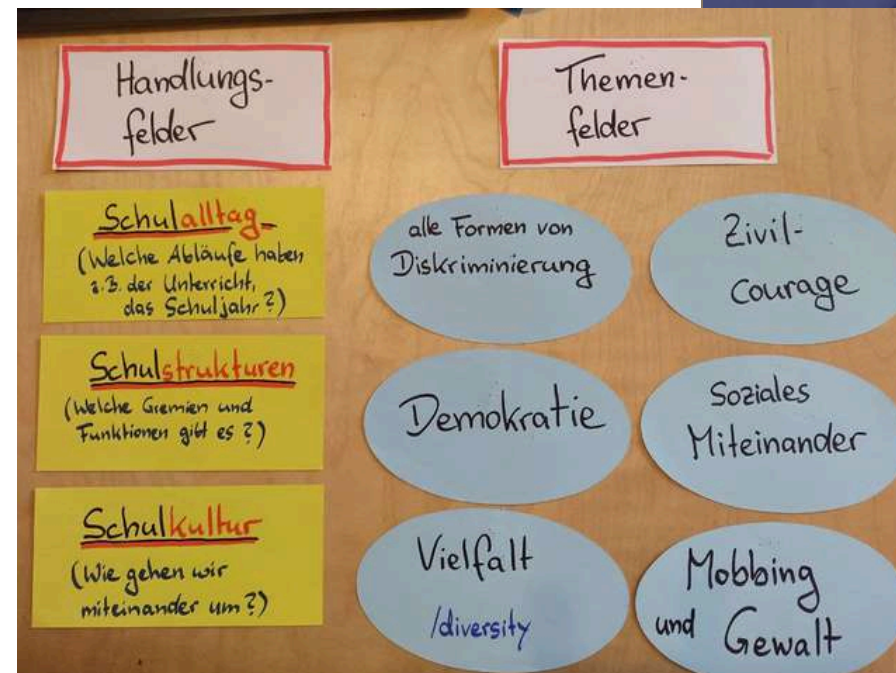 Handlungs-
felder
Schulalltag
(Welche Abläufe haben
z.B. der Unterricht,
das Schuljahr?)
Schulstrukturen
(Welche Gremien und
Funktionen gibt es?)
Schulkultur
(Wie gehen wir
miteinander um?)
Themen-
felder
alle Formen von
Diskriminierung
Zivil-
Courage
Demokratie
Soziales
Miteinander
Vielfalt
/diversity
Mobbing
und Gewalt